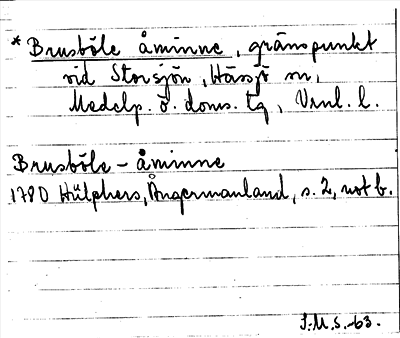 * Brusböle åminne, gränspunkt
vid Storsjön, Hässjö sn,
Medelp. ö. doms. tg, Vnl. l.
Brusböle-åminne
1780 Hülphers, Ångermanland, s. 2, not b.
S.M.S. -63.